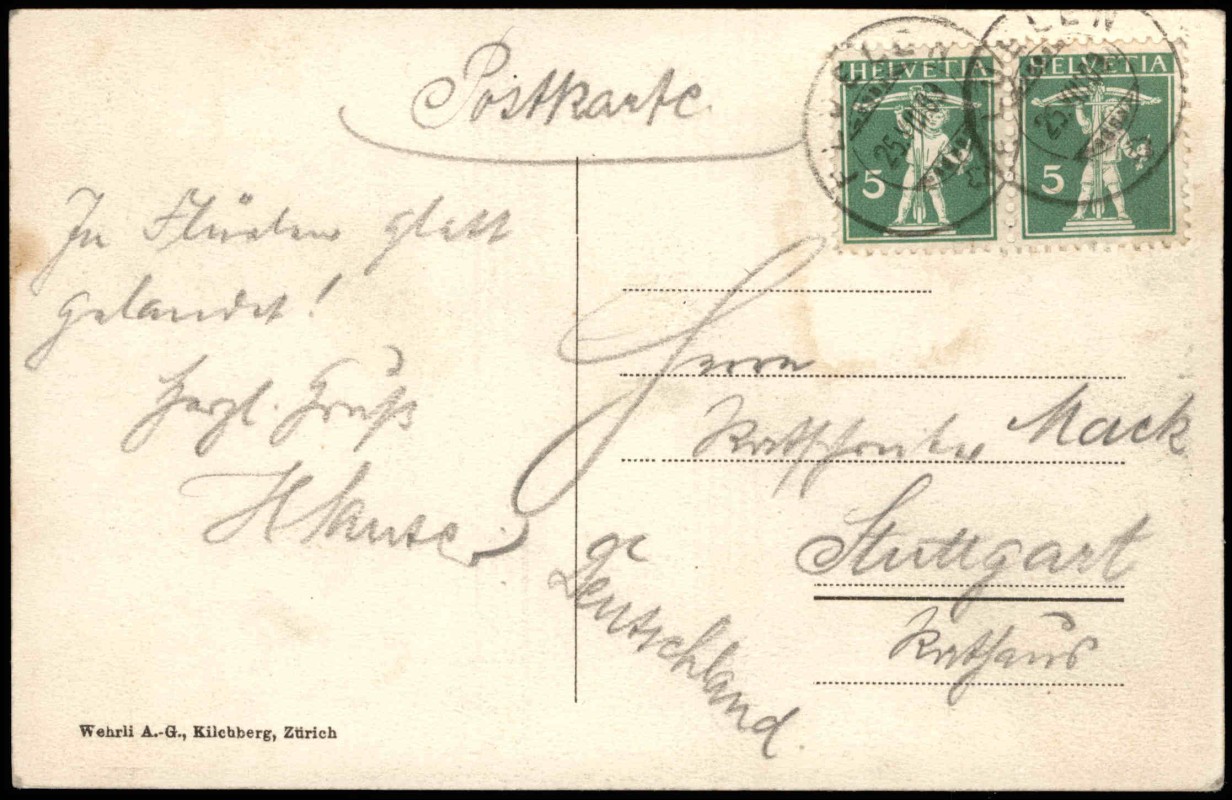 Postkarte
HELVETIA
HELVETIA
5
5
FLÜELEN
FLÜELEN
In Flüelen glatt
gelandet!
Herzl. Gruß
H
Herrn
Ratschreiber Mack
Stuttgart
Rathaus
Deutschland.
Wehrli A.-G., Kilchberg, Zürich